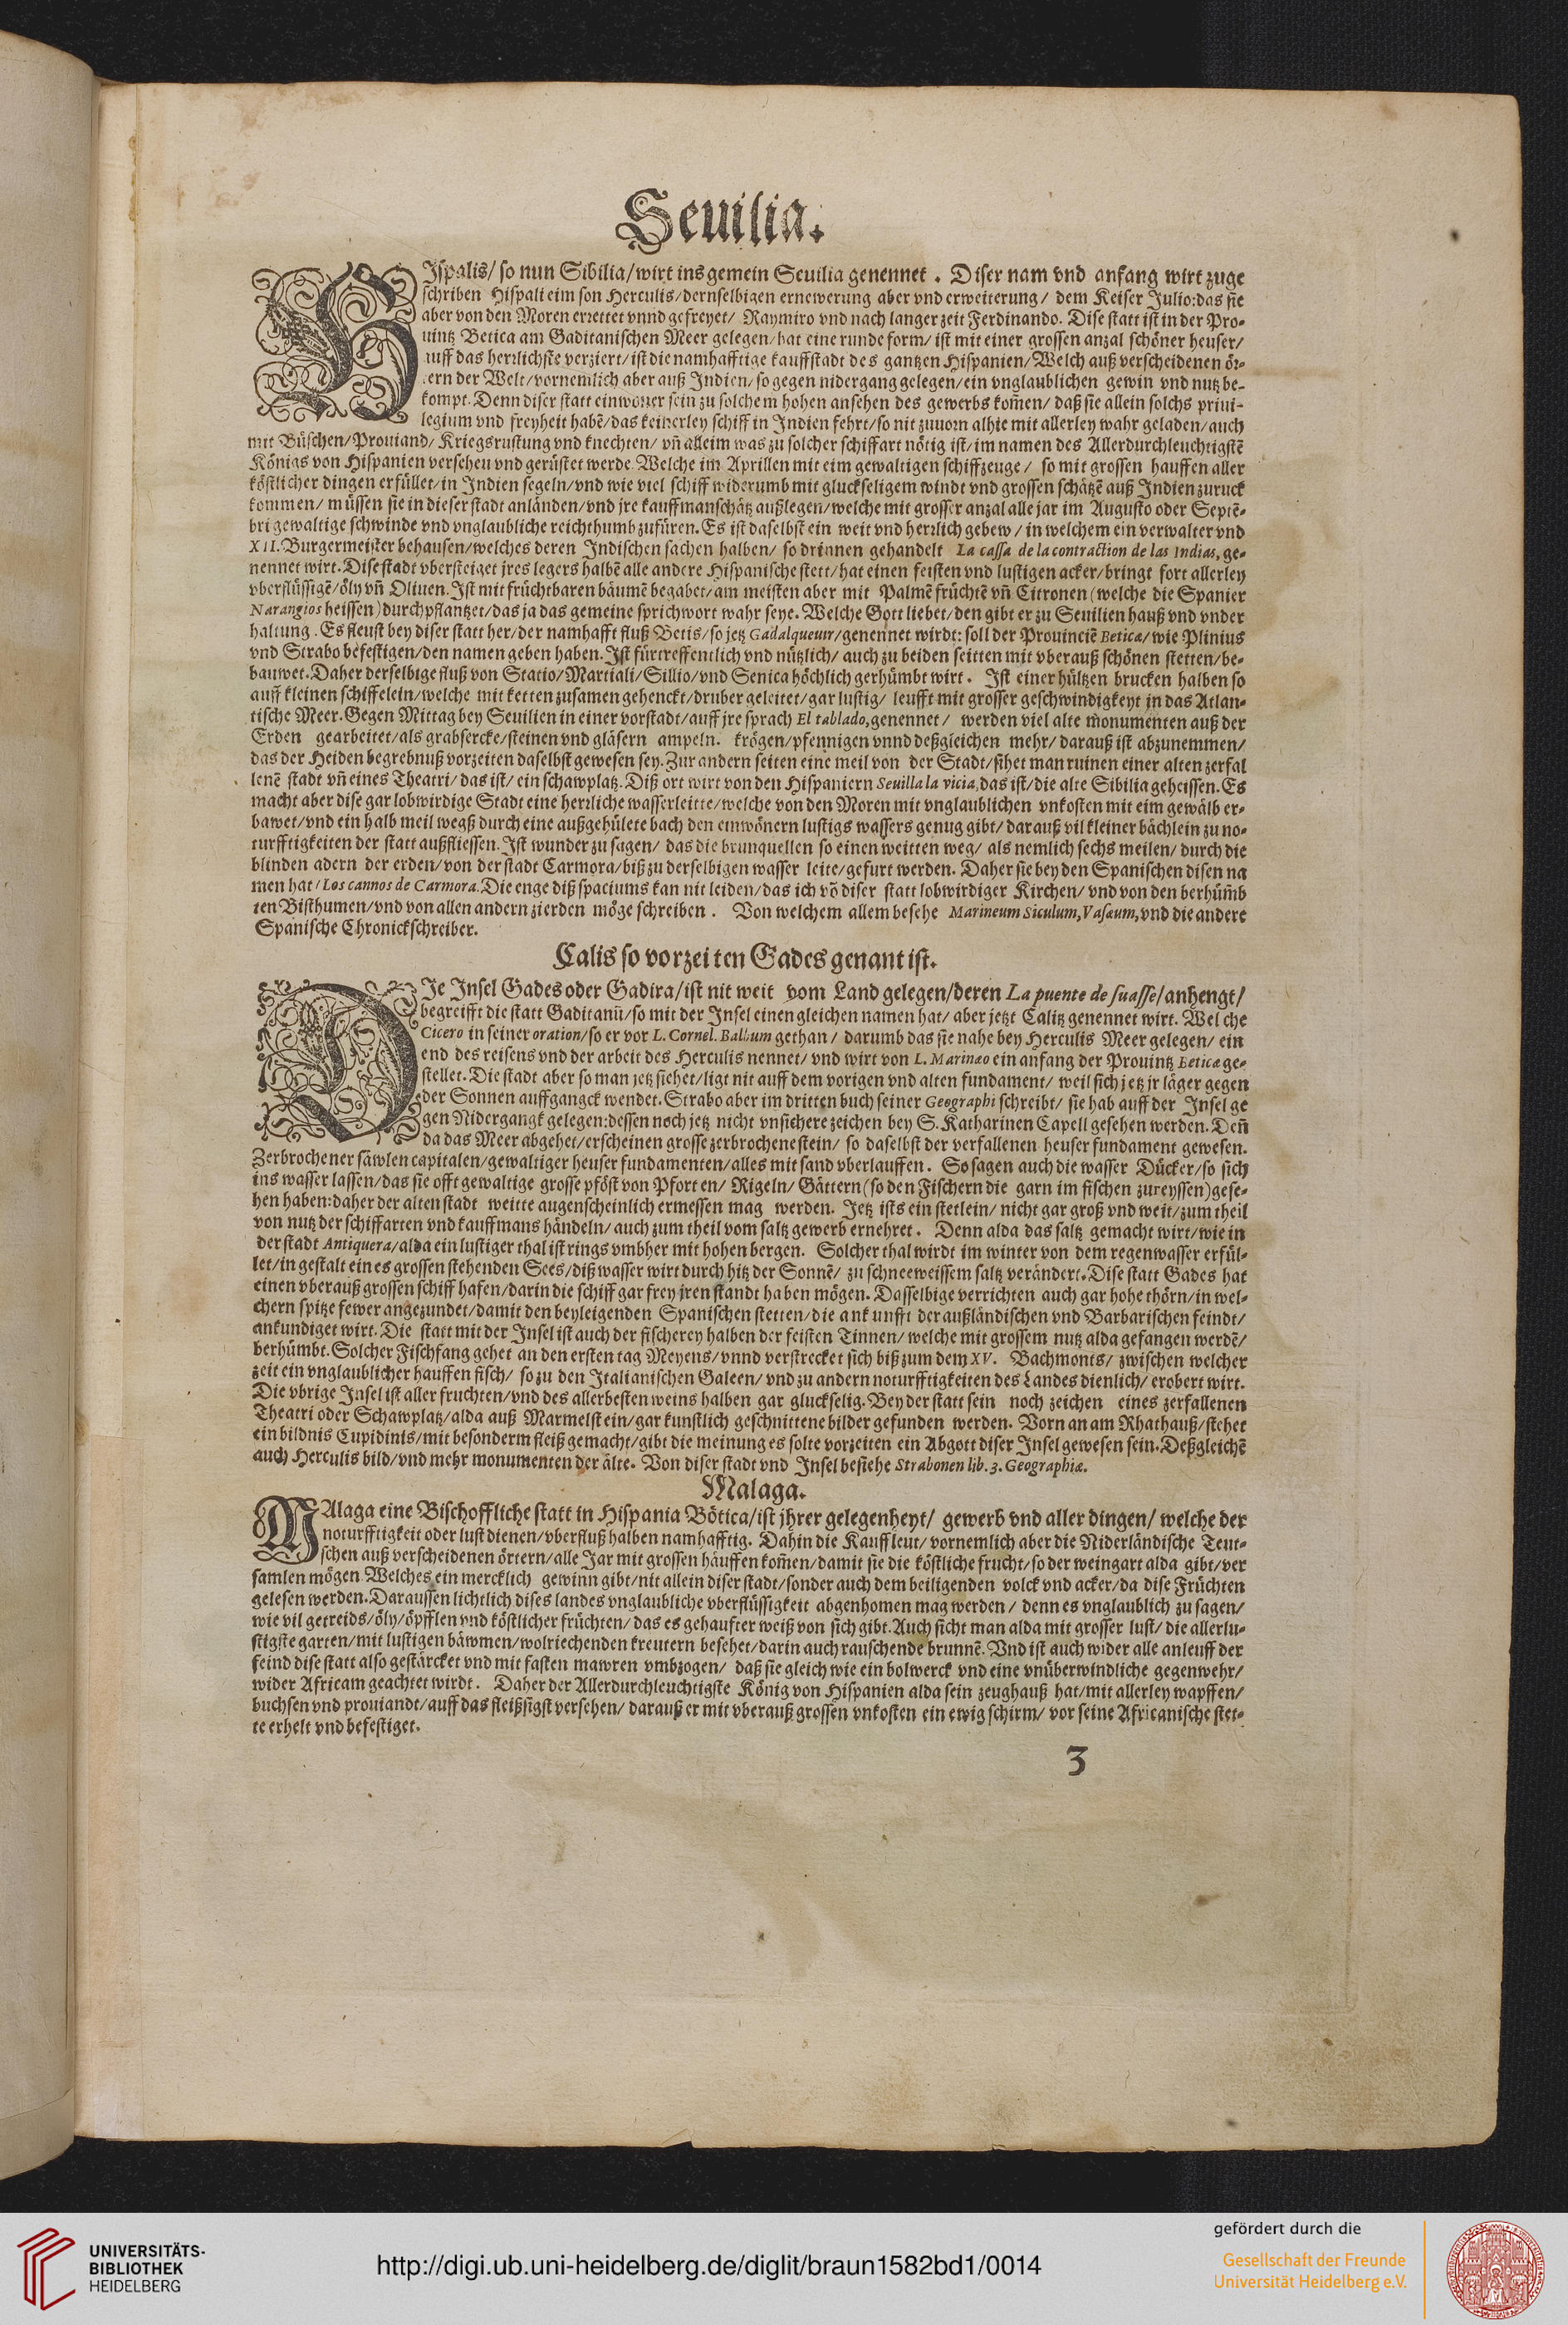 Seuilia.
HIspalis/ so nun Sibilia/ wirt ins gemein Seuilia genennet . Diser nam vnd anfang wirt zuge
schriben Hispali eim son Herculis/ dernselbigen ernewerung aber vnd erweiterung/ dem Keiser Julio: das sie
aber von den Moren errettet vnnd gefreyet/ Raymiro vnd nach langer zeit Ferdinando. Dise statt ist in der Pro-
uintz Betica am Gaditanischen Meer gelegen/ hat eine runde form/ ist mit einer grossen anzal schöner heuser/
auff das herrlichste verziert/ ist die namhafftige kauffstadt des gantzen Hispanien/ Welch auß verscheidenen ör-
tern der Welt/ vornemlich aber auß Indien/ so gegen nidergang gelegen/ ein vnglaublichen gewin vnd nutz be-
kompt. Denn diser statt einwoner sein zu solchem hohen ansehen des gewerbs kom̃en/ daß sie allein solchs priui-
legium vnd freyheit habẽ/ das keinerley schiff in Indien fehrt/ so nit zuuorn alhie mit allerley wahr geladen/ auch
mit Büschen/ Prouiand/ Kriegsrustung vnd knechten/ vñ alleim was zu solcher schiffart nötig ist/ im namen des Allerdurchleuchtigstẽ
Königs von Hispanien versehen vnd gerüstet werde. Welche im Aprillen mit eim gewaltigen schiffzeuge/ so mit grossen hauffen aller
köstlicher dingen erfüllet/ in Indien segeln/ vnd wie viel schiff widerumb mit gluckseligem windt vnd grossen schätzẽ auß Indien zuruck
kommen/ müssen sie in dieser stadt anländen/ vnd jre kauffmanschätz außlegen/ welche mit grosser anzal alle jar im Augusto oder Septẽ-
bri gewaltige schwinde vnd vnglaubliche reichthumb zufüren. Es ist daselbst ein weit vnd herrlich gebew/ in welchem ein verwalter vnd
XII. Burgermeister behausen/ welches deren Indischen sachen halben/ so drinnen gehandelt La cassa de la contraction de las Indias, ge-
nennet wirt. Dise stadt vbersteiget jres legers halbẽ alle andere Hispanische stett/ hat einen feisten vnd lustigen acker/ bringt fort allerley
vberflüssigẽ/ öly vñ Oliuen. Ist mit früchtbaren bäumẽ begabet/ am meisten aber mit Palmẽ früchtẽ vñ Citronen (welche die Spanier
Narangios heissen) durchpflantzet/ das ja das gemeine sprichwort wahr seye. Welche Gott liebet/ den gibt er zu Seuilien hauß vnd vnder
haltung. Es fleust bey diser statt her/ der namhafft fluß Betis/ so jetz Gadalqueuir/ genennet wirdt: soll der Prouinciẽ Betica/ wie Plinius
vnd Strabo befestigen/ den namen geben haben. Ist fürtreffentlich vnd nützlich/ auch zu beiden seitten mit vberauß schönen stetten/ be-
bauwet. Daher derselbige fluß von Statio/ Martiali/ Sillio/ vnd Senica höchlich gerhümbt wirt. Ist einer hültzen brucken halben so
auff kleinen schiffelein/ welche mit ketten zusamen gehenckt/ druber geleitet/ gar lustig/ leufft mit grosser geschwindigkeyt jn das Atlan-
tische Meer. Gegen Mittag bey Seuilien in einer vorstadt/ auff jre sprach El tablado, genennet/ werden viel alte monumenten auß der
Erden gearbeitet/ als grabsercke/ steinen vnd gläsern ampeln. krögen/ pfennigen vnnd deßgleichen mehr/ darauß ist abzunemmen/
das der Heiden begrebnuß vorzeiten daselbst gewesen sey. Zur andern seiten eine meil von der Stadt/ sihet man ruinen einer alten zerfal
lenẽ stadt vñ eines Theatri/ das ist/ ein schawplatz. Diß ort wirt von den Hispaniern Seuilla la vicia, das ist/ die alte Sibilia geheissen. Es
macht aber dise gar lobwirdige Stadt eine herrliche wasserleitte/ welche von den Moren mit vnglaublichen vnkosten mit eim gewälb er-
bawet/ vnd ein halb meil wegß durch eine außgehülete bach den einwönern lustigs wassers genug gibt/ darauß vil kleiner bächlein zu no-
turfftigkeiten der statt außfliessen. Ist wunder zu sagen/ das die brunquellen so einen weitten weg/ als nemlich sechs meilen/ durch die
blinden adern der erden/ von der stadt Carmora/ biß zu derselbigen wasser leite/ gefurt werden. Daher sie bey den Spanischen disen na
men hat/ Los cannos de Carmora. Die enge diß spaciums kan nit leiden/ das ich võ diser statt lobwirdiger Kirchen/ vnd von den berhüm̃b
ten Bisthumen/ vnd von allen andern zierden möge schreiben. Von welchem allem besehe Marineum Siculum, Vasæum, vnd die andere
Spanische Chronickschreiber.
Calis so vorzeiten Gades genant ist.
DIe Insel Gades oder Gadira/ ist nit weit vom Land gelegen/ deren La puente de suasse/ anhengt/
begreifft die statt Gaditanũ/ so mit der Insel einen gleichen namen hat/ aber jetzt Calitz genennet wirt. Welche
Cicero in seiner oration/ so er vor L. Cornel. Balbum gethan/ darumb das sie nahe bey Herculis Meer gelegen/ ein
end des reisens vnd der arbeit des Herculis nennet/ vnd wirt von L. Marinæo ein anfang der Prouintz Beticæ ge-
stellet. Die stadt aber so man jetz siehet/ ligt nit auff dem vorigen vnd alten fundament/ weil sich jetz jr läger gegen
der Sonnen auffgangck wendet. Strabo aber im dritten buch seiner Geographi schreibt/ sie hab auff der Insel ge
gen Nidergangk gelegen: dessen noch jetz nicht vnsichere zeichen bey S. Katharinen Capell gesehen werden. Deñ
da das Meer abgehet/ erscheinen grosse zerbrochene stein/ so daselbst der verfallenen heuser fundament gewesen.
Zerbrochener säwlen capitalen/ gewaltiger heuser fundamenten/ alles mit sand vberlauffen. So sagen auch die wasser Dücker/ so sich
ins wasser lassen/ das sie offt gewaltige grosse pföst von Pforten/ Rigeln/ Gättern (so den Fischern die garn im fischen zureyssen) gese-
hen haben: daher der alten stadt weitte augenscheinlich ermessen mag werden. Jetz ists ein stetlein/ nicht gar groß vnd weit/ zum theil
von nutz der schiffarten vnd kauffmans händeln/ auch zum theil vom saltz gewerb ernehret. Denn alda das saltz gemacht wirt/ wie in
der stadt Antiquera/ alda ein lustiger thal ist rings vmbher mit hohen bergen. Solcher thal wirdt im winter von dem regenwasser erfül-
let/ in gestalt eines grossen stehenden Sees/ diß wasser wirt durch hitz der Sonnẽ/ zu schneeweissem saltz verändert. Dise statt Gades hat
einen vberauß grossen schiff hafen/ darin die schiff gar frey jren standt haben mögen. Dasselbige verrichten auch gar hohe thörn/ in wel-
chern spitze fewer angezundet/ damit den beyleigenden Spanischen stetten/ die ankunfft der außländischen vnd Barbarischen feindt/
ankundiget wirt. Die statt mit der Insel ist auch der fischerey halben der feisten Tinnen/ welche mit grossem nutz alda gefangen werdẽ/
berhümbt. Solcher Fischfang gehet an den ersten tag Meyens/ vnnd verstrecket sich biß zum dem XV. Bachmonts/ zwischen welcher
zeit ein vnglaublicher hauffen fisch/ so zu den Italianischen Galeen/ vnd zu andern noturfftigkeiten des Landes dienlich/ erobert wirt.
Die vbrige Insel ist aller fruchten/ vnd des allerbesten weins halben gar gluckselig. Bey der statt sein noch zeichen eines zerfallenen
Theatri oder Schawplatz/ alda auß Marmelstein/ gar kunstlich geschnittene bilder gefunden werden. Vorn an am Rhathauß/ stehet
ein bildnis Cupidinis/ mit besonderm fleiß gemacht/ gibt die meinung es solte vorzeiten ein Abgott diser Insel gewesen sein. Deßgleichẽ
auch Herculis bild/ vnd mehr monumenten der älte. Von diser stadt vnd Insel besiehe Strabonen lib. 3. Geographiæ.
Malaga.
MAlaga eine Bischoffliche statt in Hispania Bötica/ ist jhrer gelegenheyt/ gewerb vnd aller dingen/ welche der
noturfftigkeit oder lust dienen/ vberfluß halben namhafftig. Dahin die Kauffleut/ vornemlich aber die Niderländische Teut-
schen auß verscheidenen örtern/ alle Jar mit grossen häuffen kom̃en/ damit sie die köstliche frucht/ so der weingart alda gibt/ ver
samlen mögen. Welches ein mercklich gewinn gibt/ nit allein diser stadt/ sonder auch dem beiligenden volck vnd acker/ da dise Früchten
gelesen werden. Daraussen lichtlich dises landes vnglaubliche vberflüssigkeit abgenhomen mag werden/ denn es vnglaublich zu sagen/
wie vil getreids/ öly/ öpfflen vnd köstlicher früchten/ das es gehaufter weiß von sich gibt. Auch sicht man alda mit grosser lust/ die allerlu-
stigste garten/ mit lustigen bäwmen/ wolriechenden kreutern besehet/ darin auch rauschende brunnẽ. Vnd ist auch wider alle anleuff der
feind dise statt also gestärcket vnd mit fasten mawren vmbzogen/ daß sie gleich wie ein bolwerck vnd eine vnüberwindliche gegenwehr/
wider Africam geachtet wirdt. Daher der Allerdurchleuchtigste König von Hispanien alda sein zeughauß hat/ mit allerley wapffen/
buchsen vnd prouiandt/ auff das fleißsigst versehen/ darauß er mit vberauß grossen vnkosten ein ewig schirm/ vor seine Africanische stet-
te erhelt vnd befestiget.
3
UNIVERSITÄTS-
BIBLIOTHEK
HEIDELBERG
http://digi.ub.uni-heidelberg.de/diglit/braun1582bd1/0014
gefördert durch die
Gesellschaft der Freunde
Universität Heidelberg e.V.